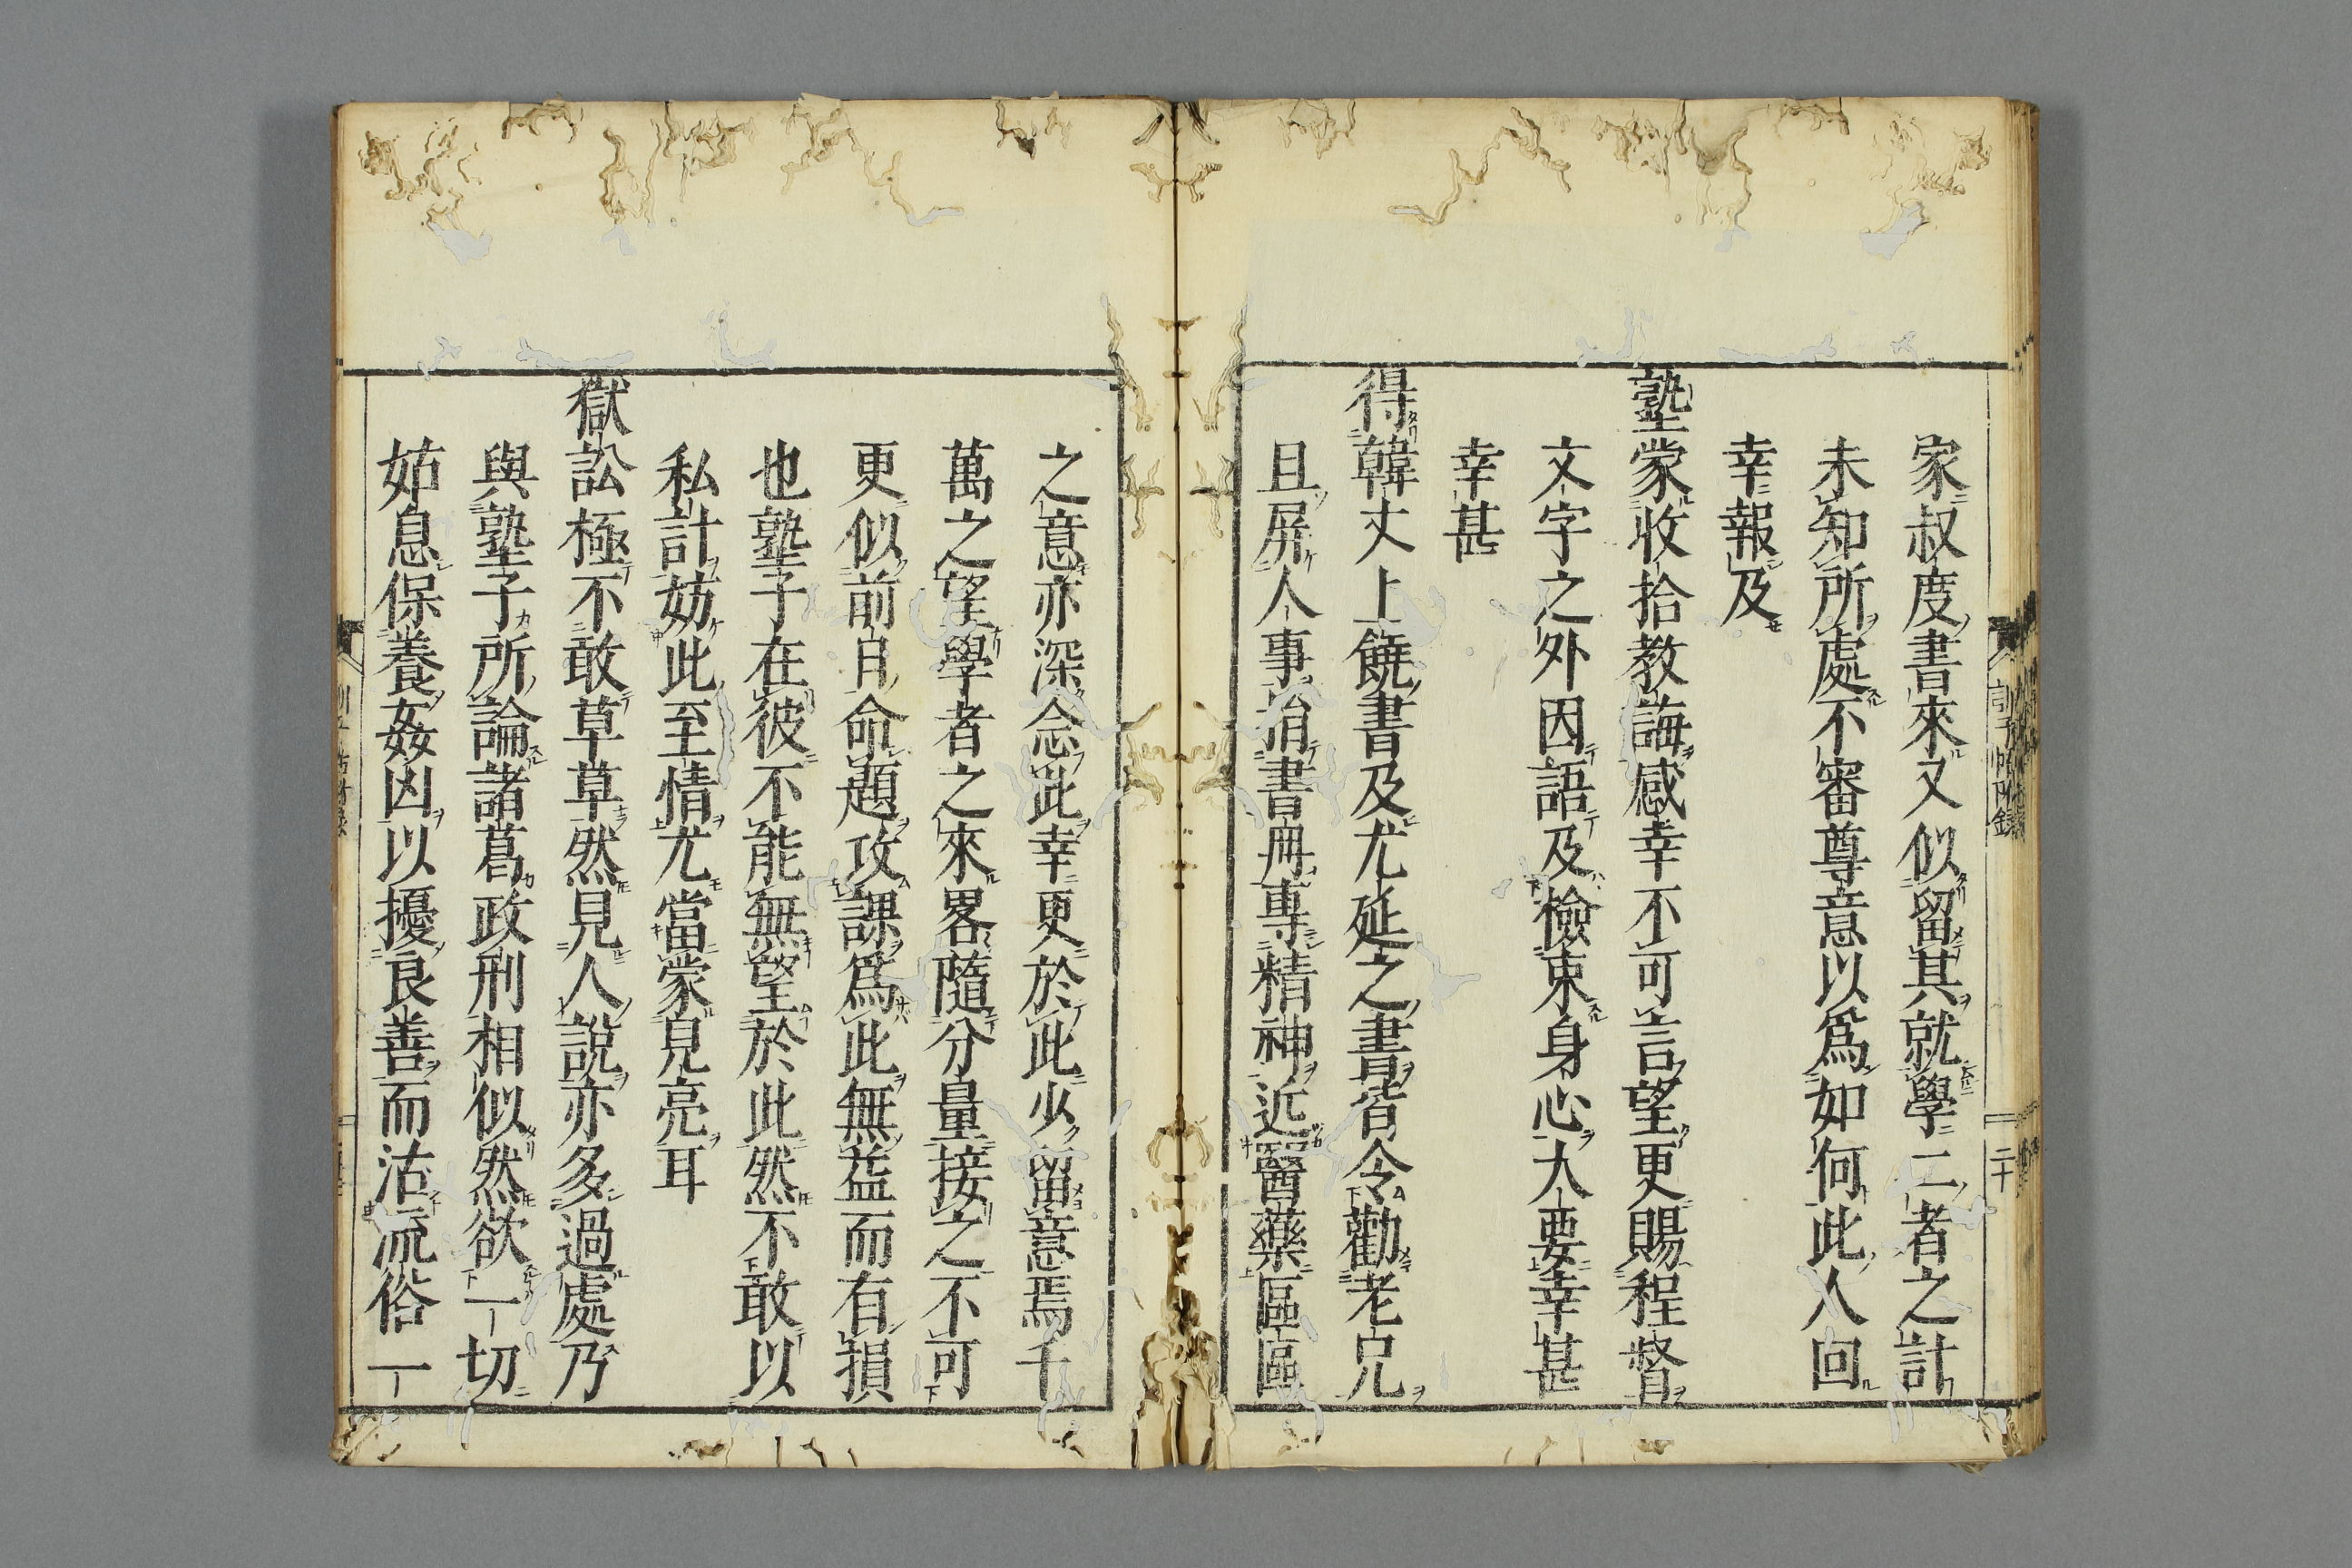 家叔度書來又似留其就學二者之計
未知所處不審尊意以爲如何此人回
幸報及
塾蒙收拾教誨感幸不可言望更賜程督
文字之外因語及檢束身心大要幸甚
幸甚
得韓丈上饒書及尤延之書皆令勸老兄
且屏人事捐書冊專精神近醫藥區區
之意亦深念此幸更於此少留意焉千
萬之望學者之來畧隨分量接之不可
更似前日命題攻課爲此無益而有損
也塾子在彼不能無望於此然不敢以
私計妨此至情尤當蒙見亮耳
獄訟極不敢草草然見人說亦多過處乃
與塾子所論諸葛政刑相似然欲一切
姑息保養姦凶以擾良善而沽流俗一